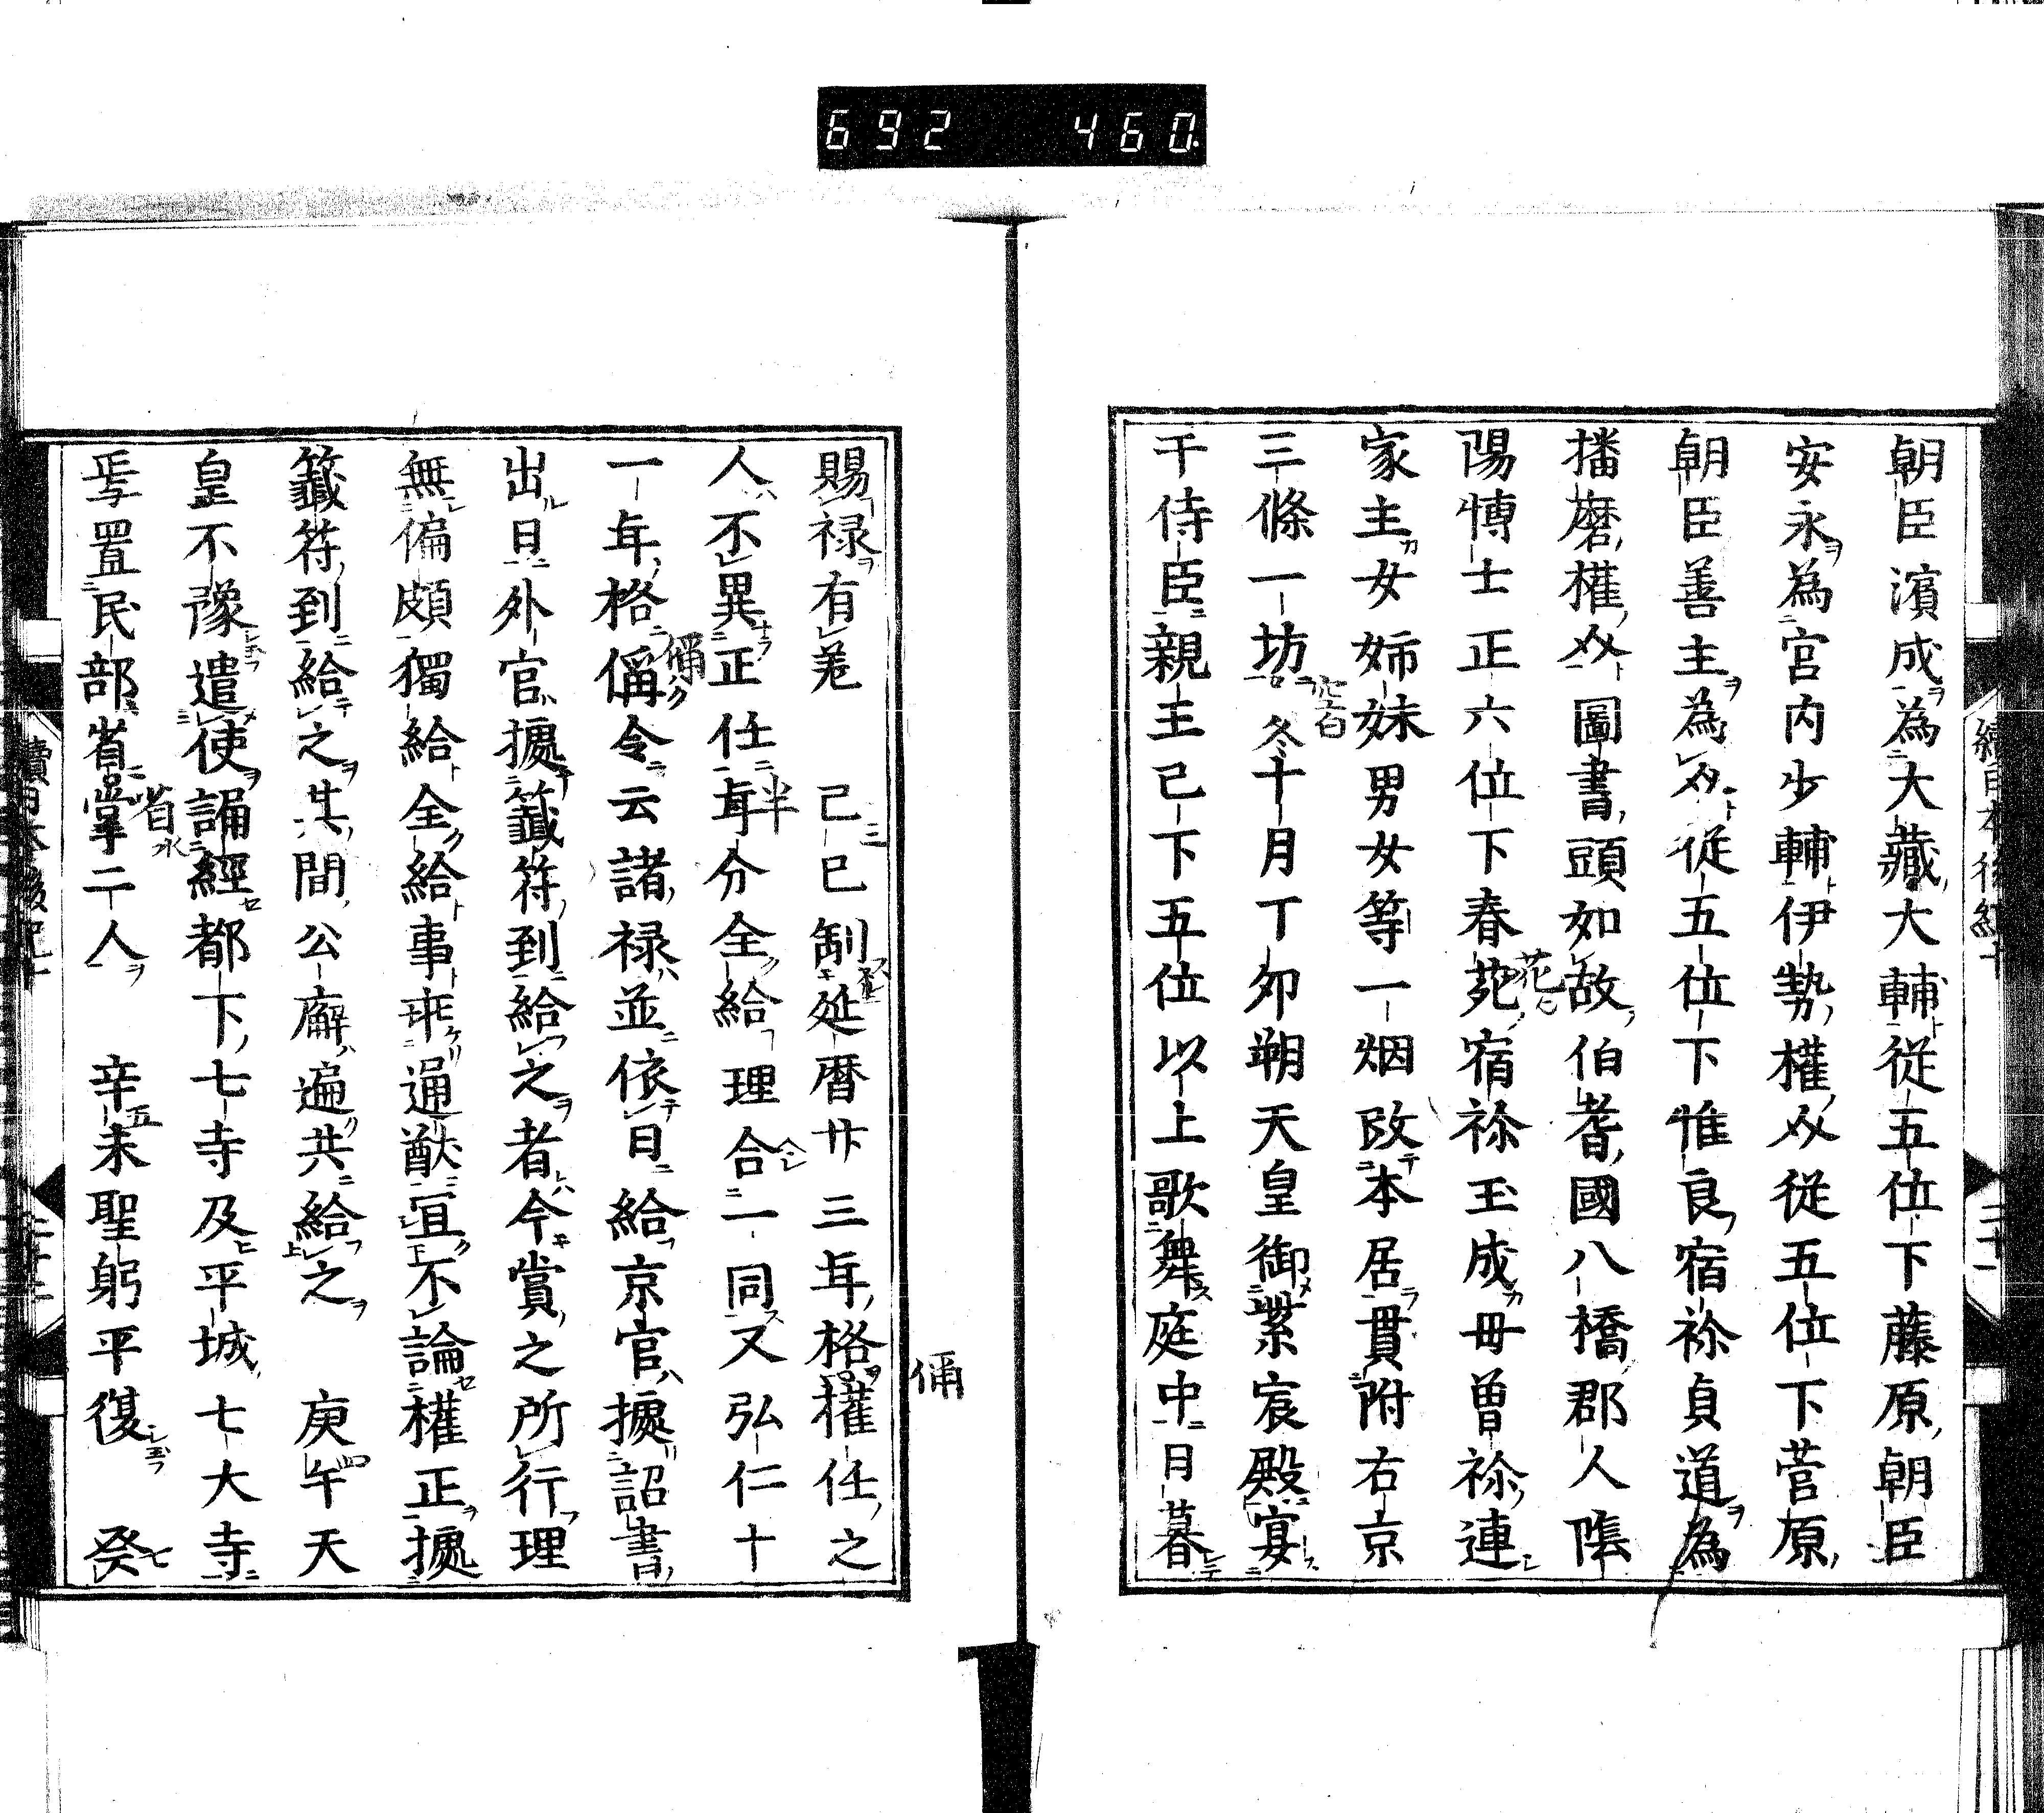 692 460
朝臣濱成為大藏大輔従五位下藤原朝臣
安永為宮内少輔伊勢權介従五位下菅原
朝臣善主為介従五位下惟良宿祢貞道為
播磨權介圖書頭如故伯耆國八橋郡人陰
陽博士正六位下春苑宿祢玉成母曽祢連
家主女姉妹男女等一烟改本居貫附右京
三條一坊冬十月丁夘朔天皇御紫宸殿宴
于侍臣親王已下五位以上歌舞庭中日暮
賜禄有差 己巳制延暦廿三年格權任之
人不異正任年分全給理合一同又弘仁十
一年格偁令云諸禄並依日給京官據詔書
出日外官據籤符到給之者今賞之所行理
無偏頗獨給全給事乖通猷宜不論權正據
籤符到給之其間公廨遍共給之 庚午天
皇不豫遣使誦經都下七寺及平城七大寺
焉置民部省掌二人 辛未聖躬平復 癸